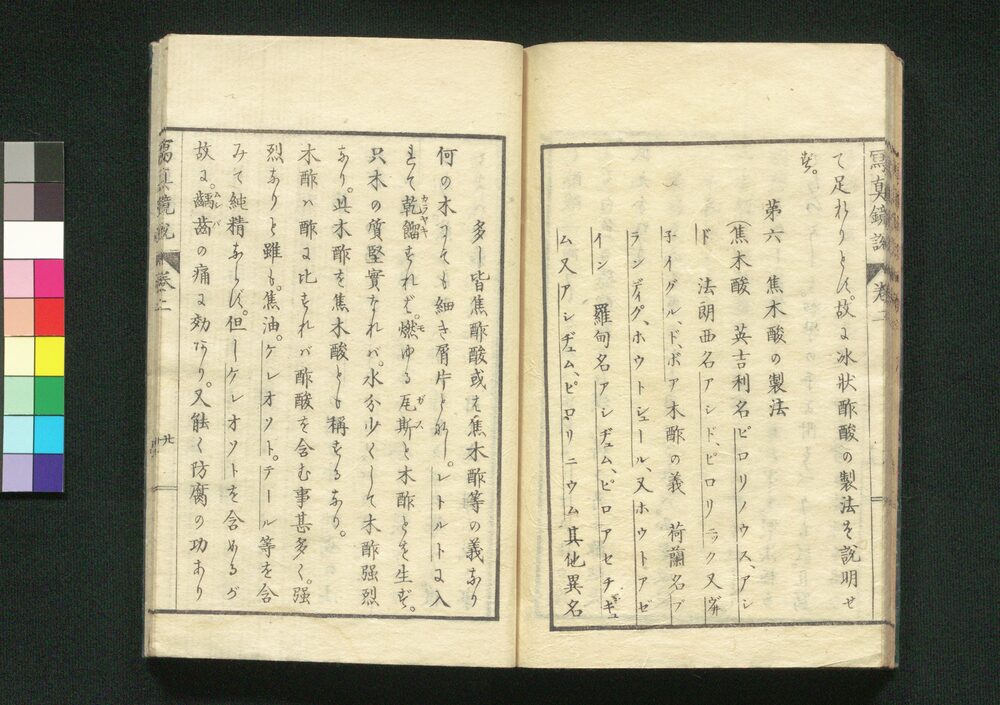 寫真鏡説 卷二
て足れりとす。故に冰狀酢酸の製法を說明せ
ず。
第六 焦木酸の製法
(焦木酸 英吉利名ピロリノウス、アシ
ド 法朗西名アシド、ピロリニク又
子イグル、ド、ボア 木酢の義 荷蘭名ブ
ランディグ、ホウトシュール、又ホウトアゼ
イン 羅甸名アシヂュム、ピロアセチキュ
ム又アシヂュム、ピロリニウム其他異名
多し皆焦酢酸或は焦木酢等の義なり
何の木にても細き屑片となし。レトルトに入
れて乾餾すれば。燃ゆる瓦斯と木酢とを生ず。
カラヤキ
モ
ガス
只木の質堅實なれバ。水分少くして木酢强烈
なり。此木酢を焦木酸とも稱するなり。
木酢ハ酢に比すれバ酢酸を含む事甚多く。强
烈なりと雖も。焦油。ケレオソト。テール等を含
みて純精ならず。但しケレオソトを含めるが
故に。齲齒の痛に効あり。又能く防腐の功あり
ムシバ
寫眞鏡說 卷二
廿